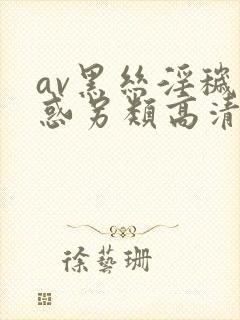 av黑丝淫秽
惑另类高清
徐艺珊